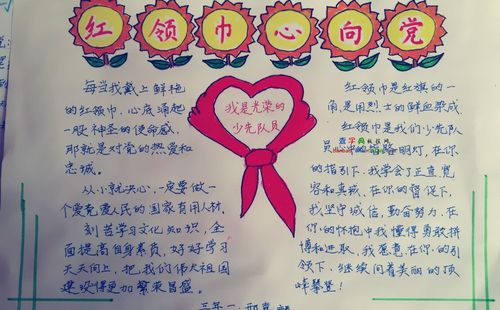 红领巾心向党
每当我戴上鲜艳
的红领巾、心底涌起
一股神圣的使命感,
那就是对党的热爱和
忠诚。
从小就决心,一定要做一
个爱党爱人民的国家有用人材,
刻苦学习文化知识,全
面提高自身素质,好好学习
天天向上,把我们伟大祖国
建设得更加繁荣昌盛。
我是光荣的
少先队员
红领巾是红旗的一
角是用烈士的鲜血染成
红领巾是我们少先队
员心中的指路明灯,在你
的指引下,我学会了正直宽
容和真诚,在你的督促下,
我坚守诚信,勤奋努力,在
你的怀抱中我懂得勇敢拼
博和进取,我愿意在你的引
领下,继续向着美丽的顶
峰攀登!
查字典
三年一